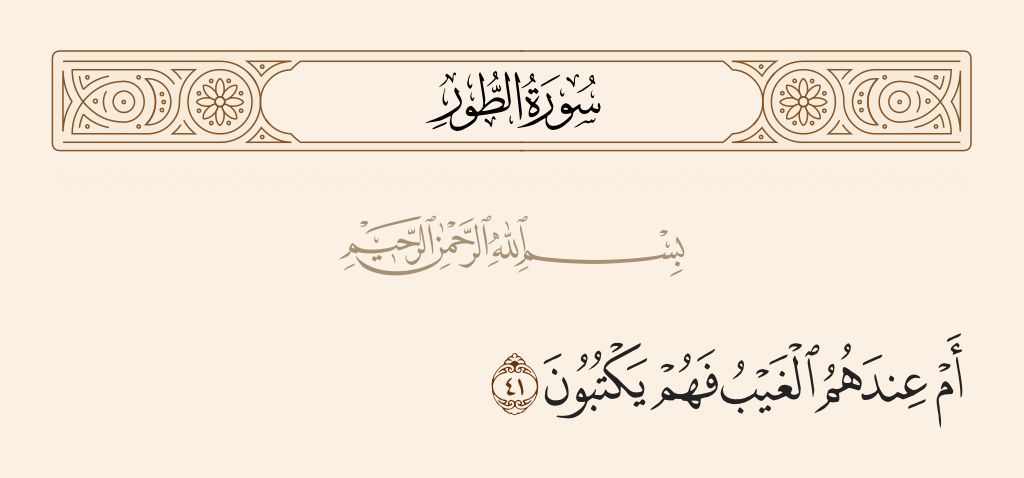 سُورَةُ الطُّورِ
بِسْمِ ٱللَّهِ ٱلرَّحْمَٰنِ ٱلرَّحِيمِ
أَمْ عِندَهُمُ ٱلْغَيْبُ فَهُمْ يَكْتُبُونَ ٤١